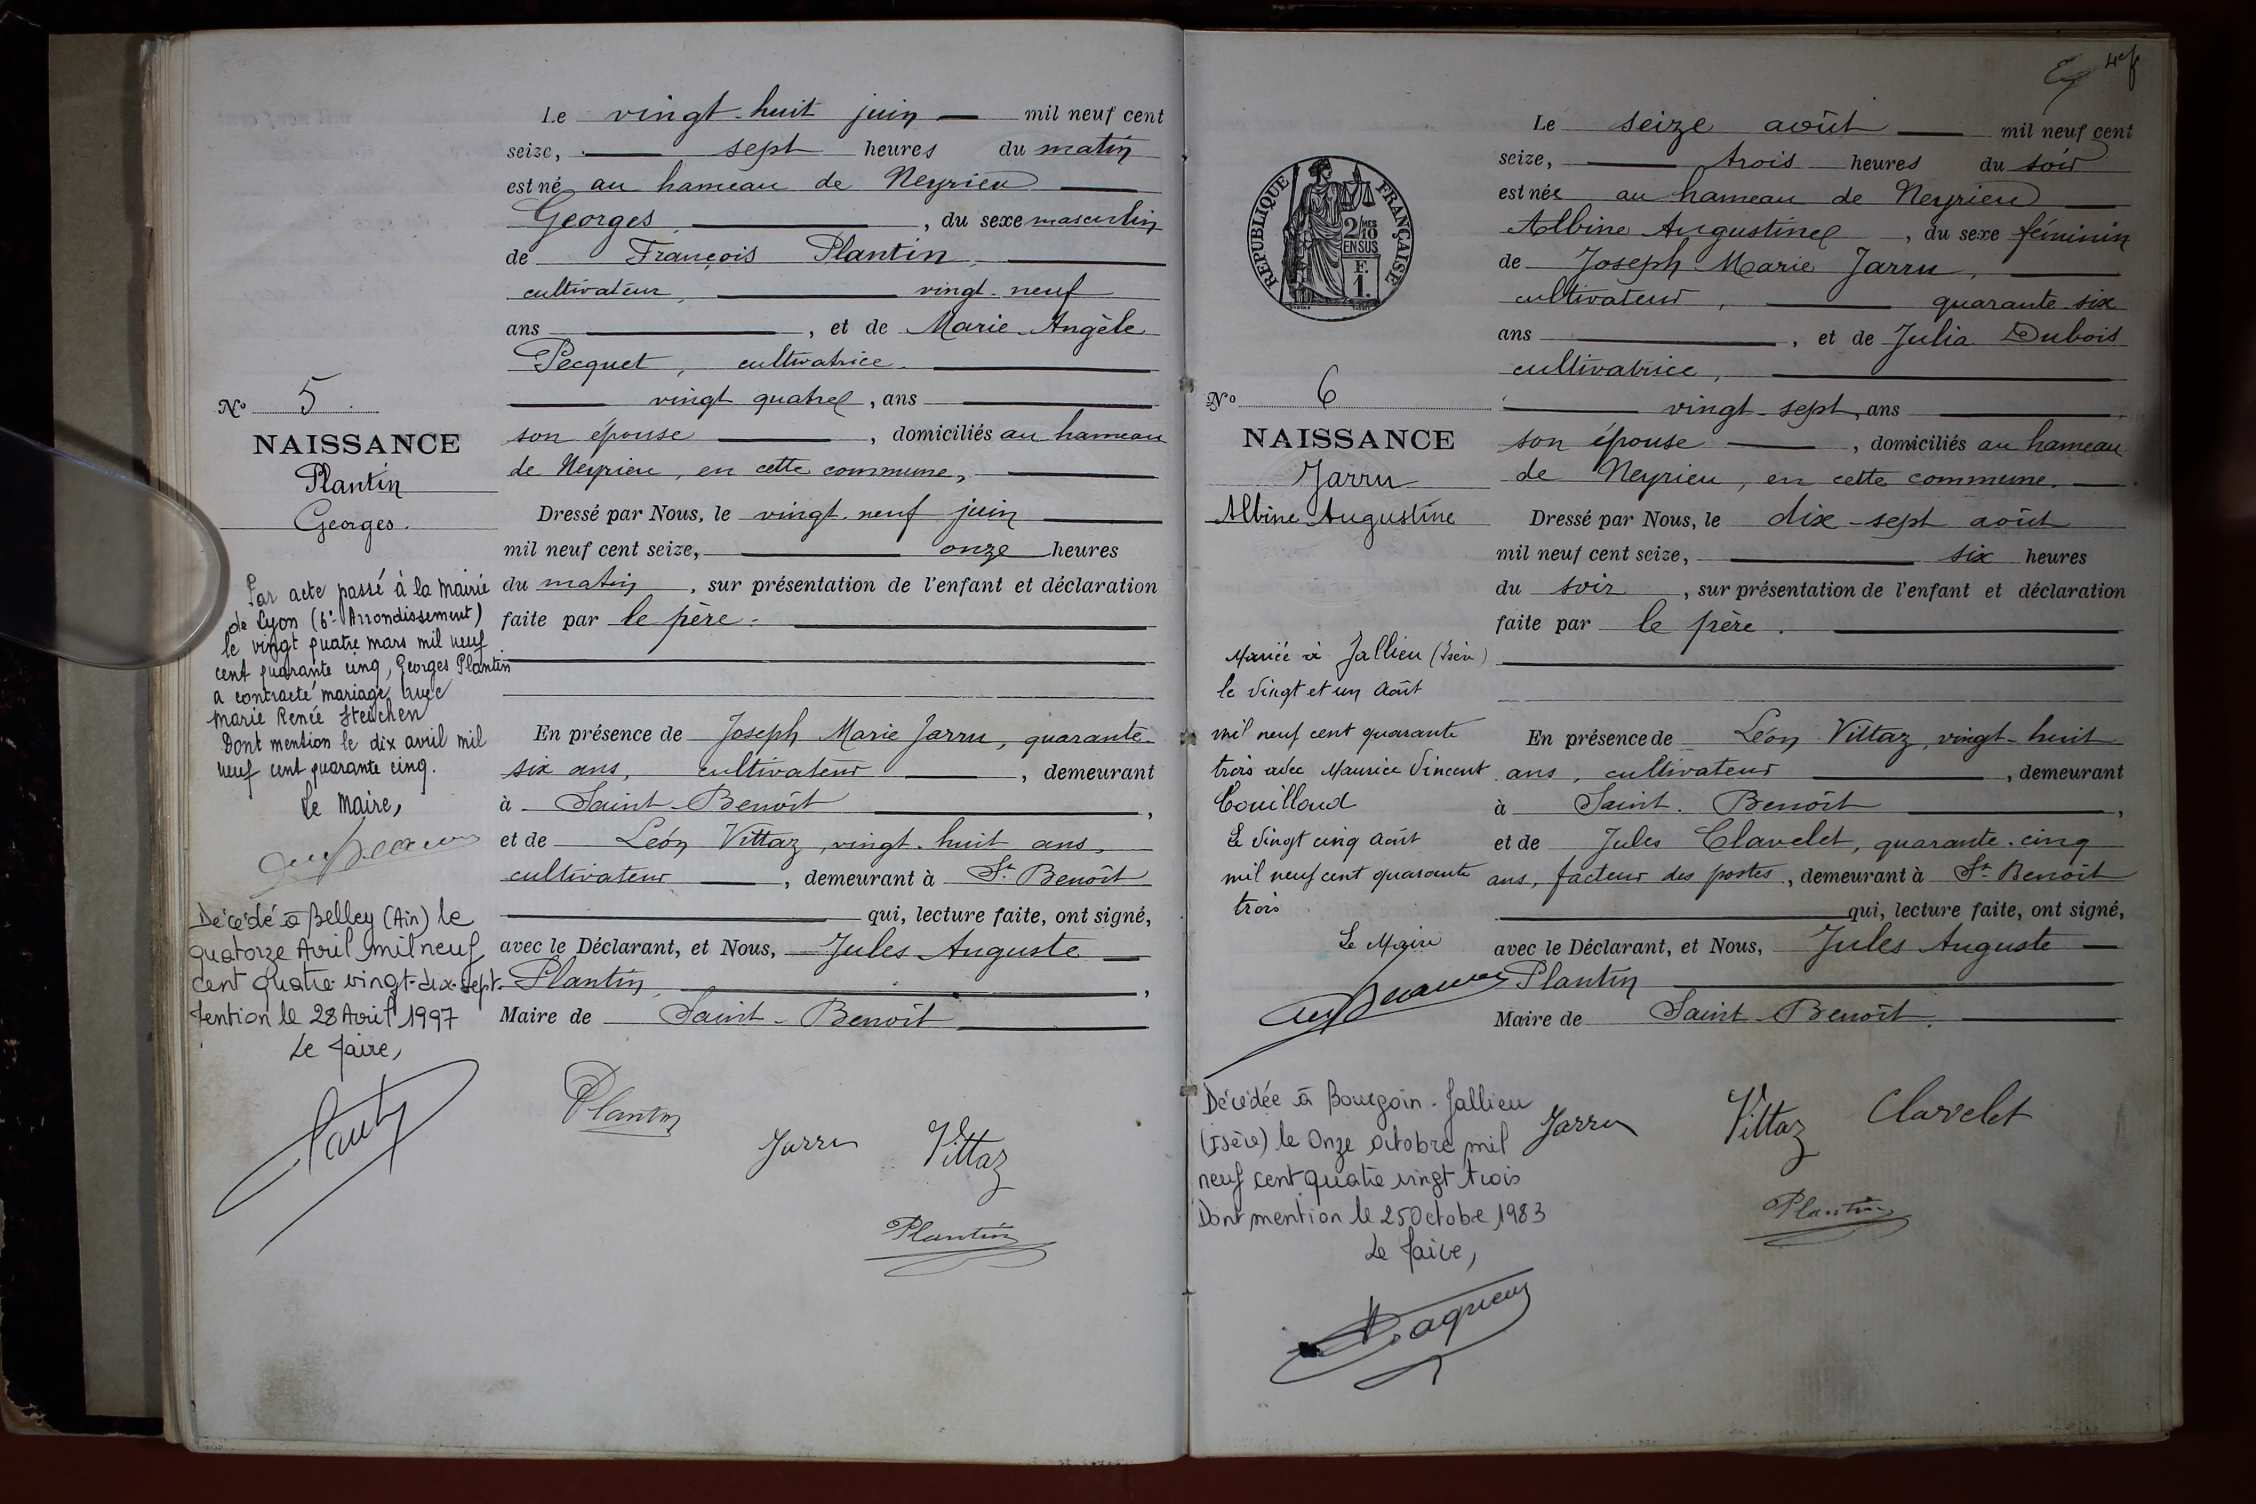 Le vingt-huit juin mil neuf cent
seize, sept heures du matin
est né au hameau de Neyrieu
Georges, du sexe masculin
de François Plantin,
cultivateur, vingt-neuf
ans, et de Marie-Angèle
Pecquet, cultivatrice.
vingt quatre, ans
son épouse, domiciliés au hameau
de Neyrieu, en cette commune,
Dressé par Nous, le vingt-neuf juin
mil neuf cent seize, onze heures
du matin, sur présentation de l'enfant et déclaration
faite par le père.
En présence de Joseph Marie Jarru, quarante-
six ans, cultivateur, demeurant
à Saint-Benoît,
et de Léon Vittaz, vingt-huit ans,
cultivateur, demeurant à St. Benoît
qui, lecture faite, ont signé,
avec le Déclarant, et Nous, Jules Auguste
Plantin,
Maire de Saint-Benoît
Plantin
Jarru
Vittaz
Plantin
No 5.
NAISSANCE
Plantin
Georges.
Par acte passé à la mairie
de Lyon (6e Arrondissement)
le vingt quatre mars mil neuf
cent quarante cinq, Georges Plantin
a contracté mariage avec
Marie Renée Steichen
Dont mention le dix avril mil
neuf cent quarante cinq.
Le Maire,
Décédé à Belley (Ain) le
quatorze Avril mil neuf
cent quatre-vingt-dix-sept.
Mention le 28 Avril 1997
Le Maire,
4e f
REPUBLIQUE FRANÇAISE
2/10 MES
EN SUS
F.
1.
No 6
NAISSANCE
Jarru
Albine Augustine
Mariée à Jallieu (Isère)
le vingt et un Août
mil neuf cent quarante
trois avec Maurice Vincent
Couilloud
Le vingt cinq Août
mil neuf cent quarante
trois
Le Maire
Décédée à Bourgoin-Jallieu
(Isère) le Onze octobre mil
neuf cent quatre vingt trois
Dont mention le 25 Octobre 1983
Le Maire,
Le seize août mil neuf cent
seize, trois heures du soir
est née au hameau de Neyrieu
Albine Augustine, du sexe féminin
de Joseph-Marie Jarru,
cultivateur, quarante-six
ans, et de Julia Dubois
cultivatrice,
vingt-sept, ans
son épouse, domiciliés au hameau
de Neyrieu, en cette commune.
Dressé par Nous, le dix-sept août
mil neuf cent seize, six heures
du soir, sur présentation de l'enfant et déclaration
faite par le père.
En présence de Léon Vittaz, vingt-huit
ans, cultivateur, demeurant
à Saint-Benoît,
et de Jules Clavelet, quarante-cinq
ans, facteur des postes, demeurant à St. Benoît
qui, lecture faite, ont signé,
avec le Déclarant, et Nous, Jules Auguste
Plantin
Maire de Saint-Benoît.
Jarru
Vittaz
Clavelet
Plantin